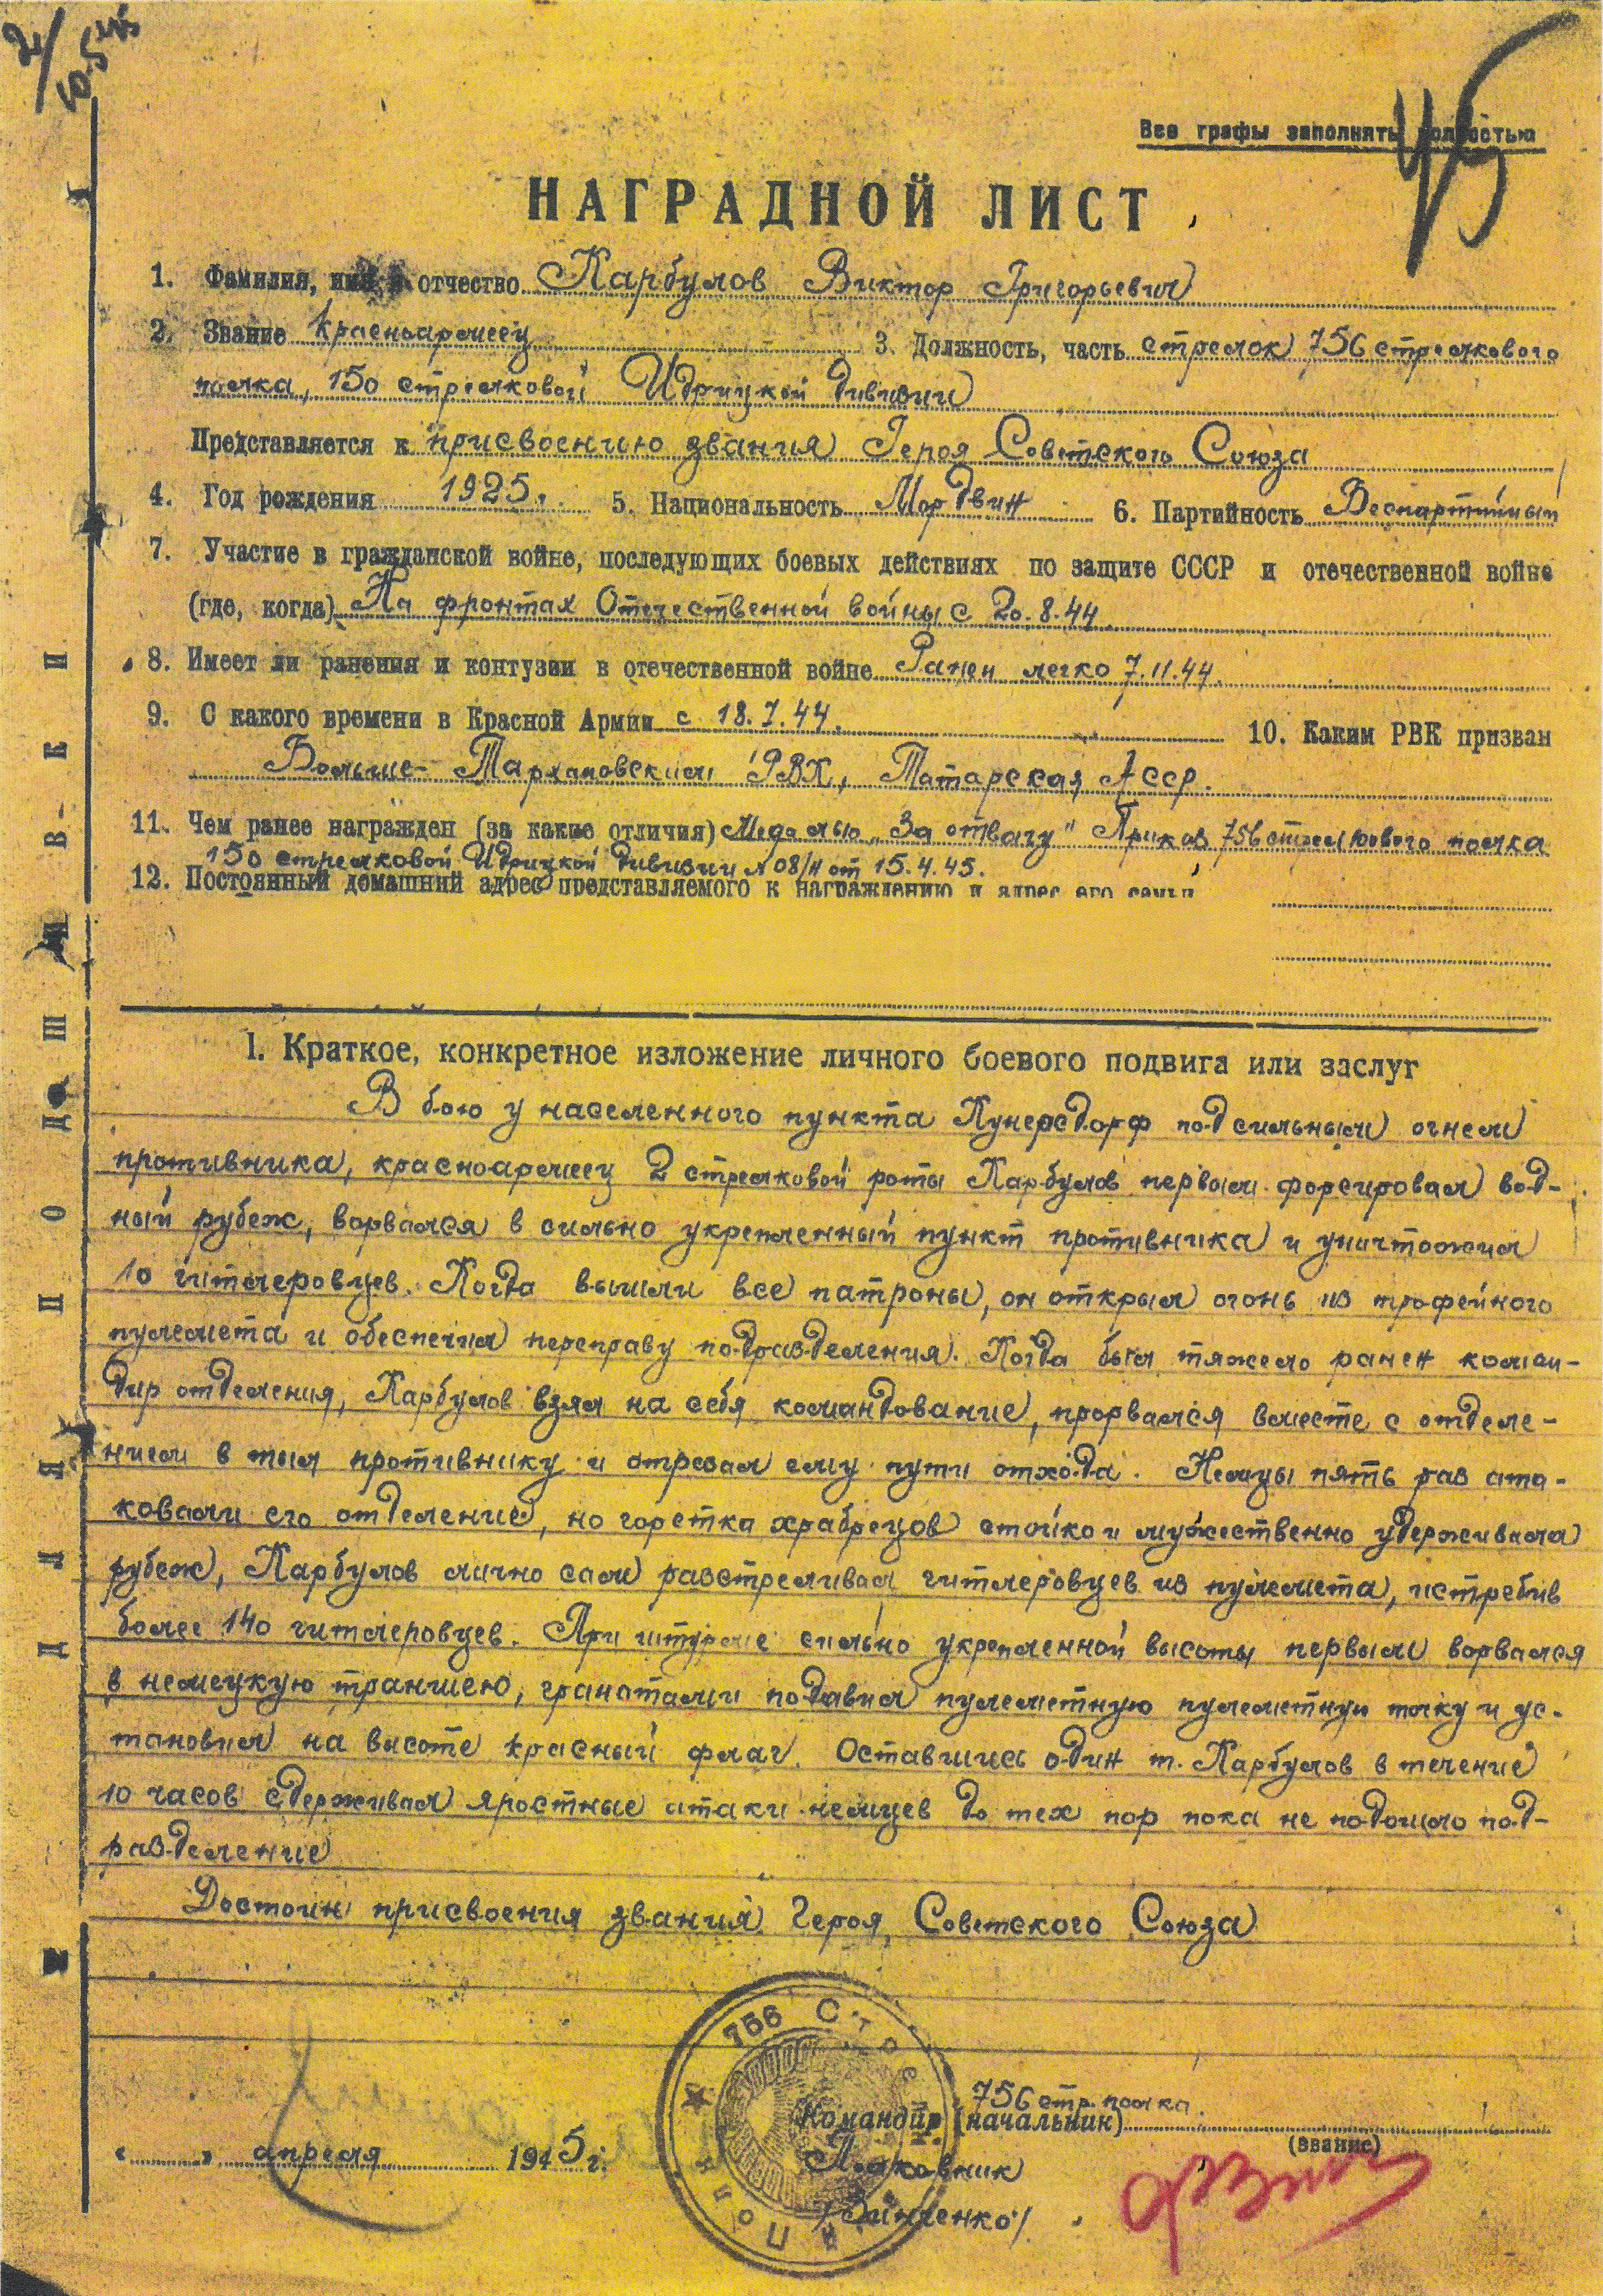 10.5.45
Все графы заполнять полностью
45
НАГРАДНОЙ ЛИСТ
1. Фамилия, имя и отчество Карбулов Виктор Григорьевич
2. Звание Красноармеец 3. Должность, часть стрелок 756 стрелкового
полка, 150 стрелковой Идрицкой дивизии
Представляется к присвоению звания Героя Советского Союза
4. Год рождения 1925. 5. Национальность Мордвин 6. Партийность Беспартийный
7. Участие в гражданской войне, последующих боевых действиях по защите СССР и отечественной войне
(где, когда) На фронтах Отечественной войны с 20.8.44.
8. Имеет ли ранения и контузии в отечественной войне Ранен легко 7.11.44.
9. С какого времени в Красной Армии с 18.7.44. 10. Каким РВК призван
Больше-Тархановским РВК, Татарская АССР.
11. Чем ранее награжден (за какие отличия) Медалью „За отвагу" Приказ 756 стрелкового полка
150 стрелковой Идрицкой дивизии №08/н от 15.4.45.
12. Постоянный домашний адрес представляемого к награждению и адрес его семьи
I. Краткое, конкретное изложение личного боевого подвига или заслуг
В бою у населенного пункта Кунерсдорф под сильным огнем
противника, красноармеец 2 стрелковой роты Карбулов первым форсировал вод-
ный рубеж, ворвался в сильно укрепленный пункт противника и уничтожил
10 гитлеровцев. Когда вышли все патроны, он открыл огонь из трофейного
пулемета и обеспечил переправу подразделения. Когда был тяжело ранен коман-
дир отделения, Карбулов взял на себя командование, прорвался вместе с отделе-
нием в тыл противнику и отрезал ему пути отхода. Немцы пять раз ата-
ковали его отделение, но горстка храбрецов стойко и мужественно удерживала
рубеж, Карбулов лично сам расстреливал гитлеровцев из пулемета, истребив
более 140 гитлеровцев. При штурме сильно укрепленной высоты первым ворвался
в немецкую траншею, гранатами подавил пулеметную пулеметную точку и ус-
тановил на высоте красный флаг. Оставшись один т. Карбулов в течение
10 часов сдерживал яростные атаки немцев до тех пор пока не подошло под-
разделение
Достоин присвоения звания Героя Советского Союза
756 Стрел
756 стр. полка.
Командир (начальник)
(звание)
« » апреля 1945 г.
Полковник
/Зинченко/
Полк
ДЛЯ ПОДШИВКИ